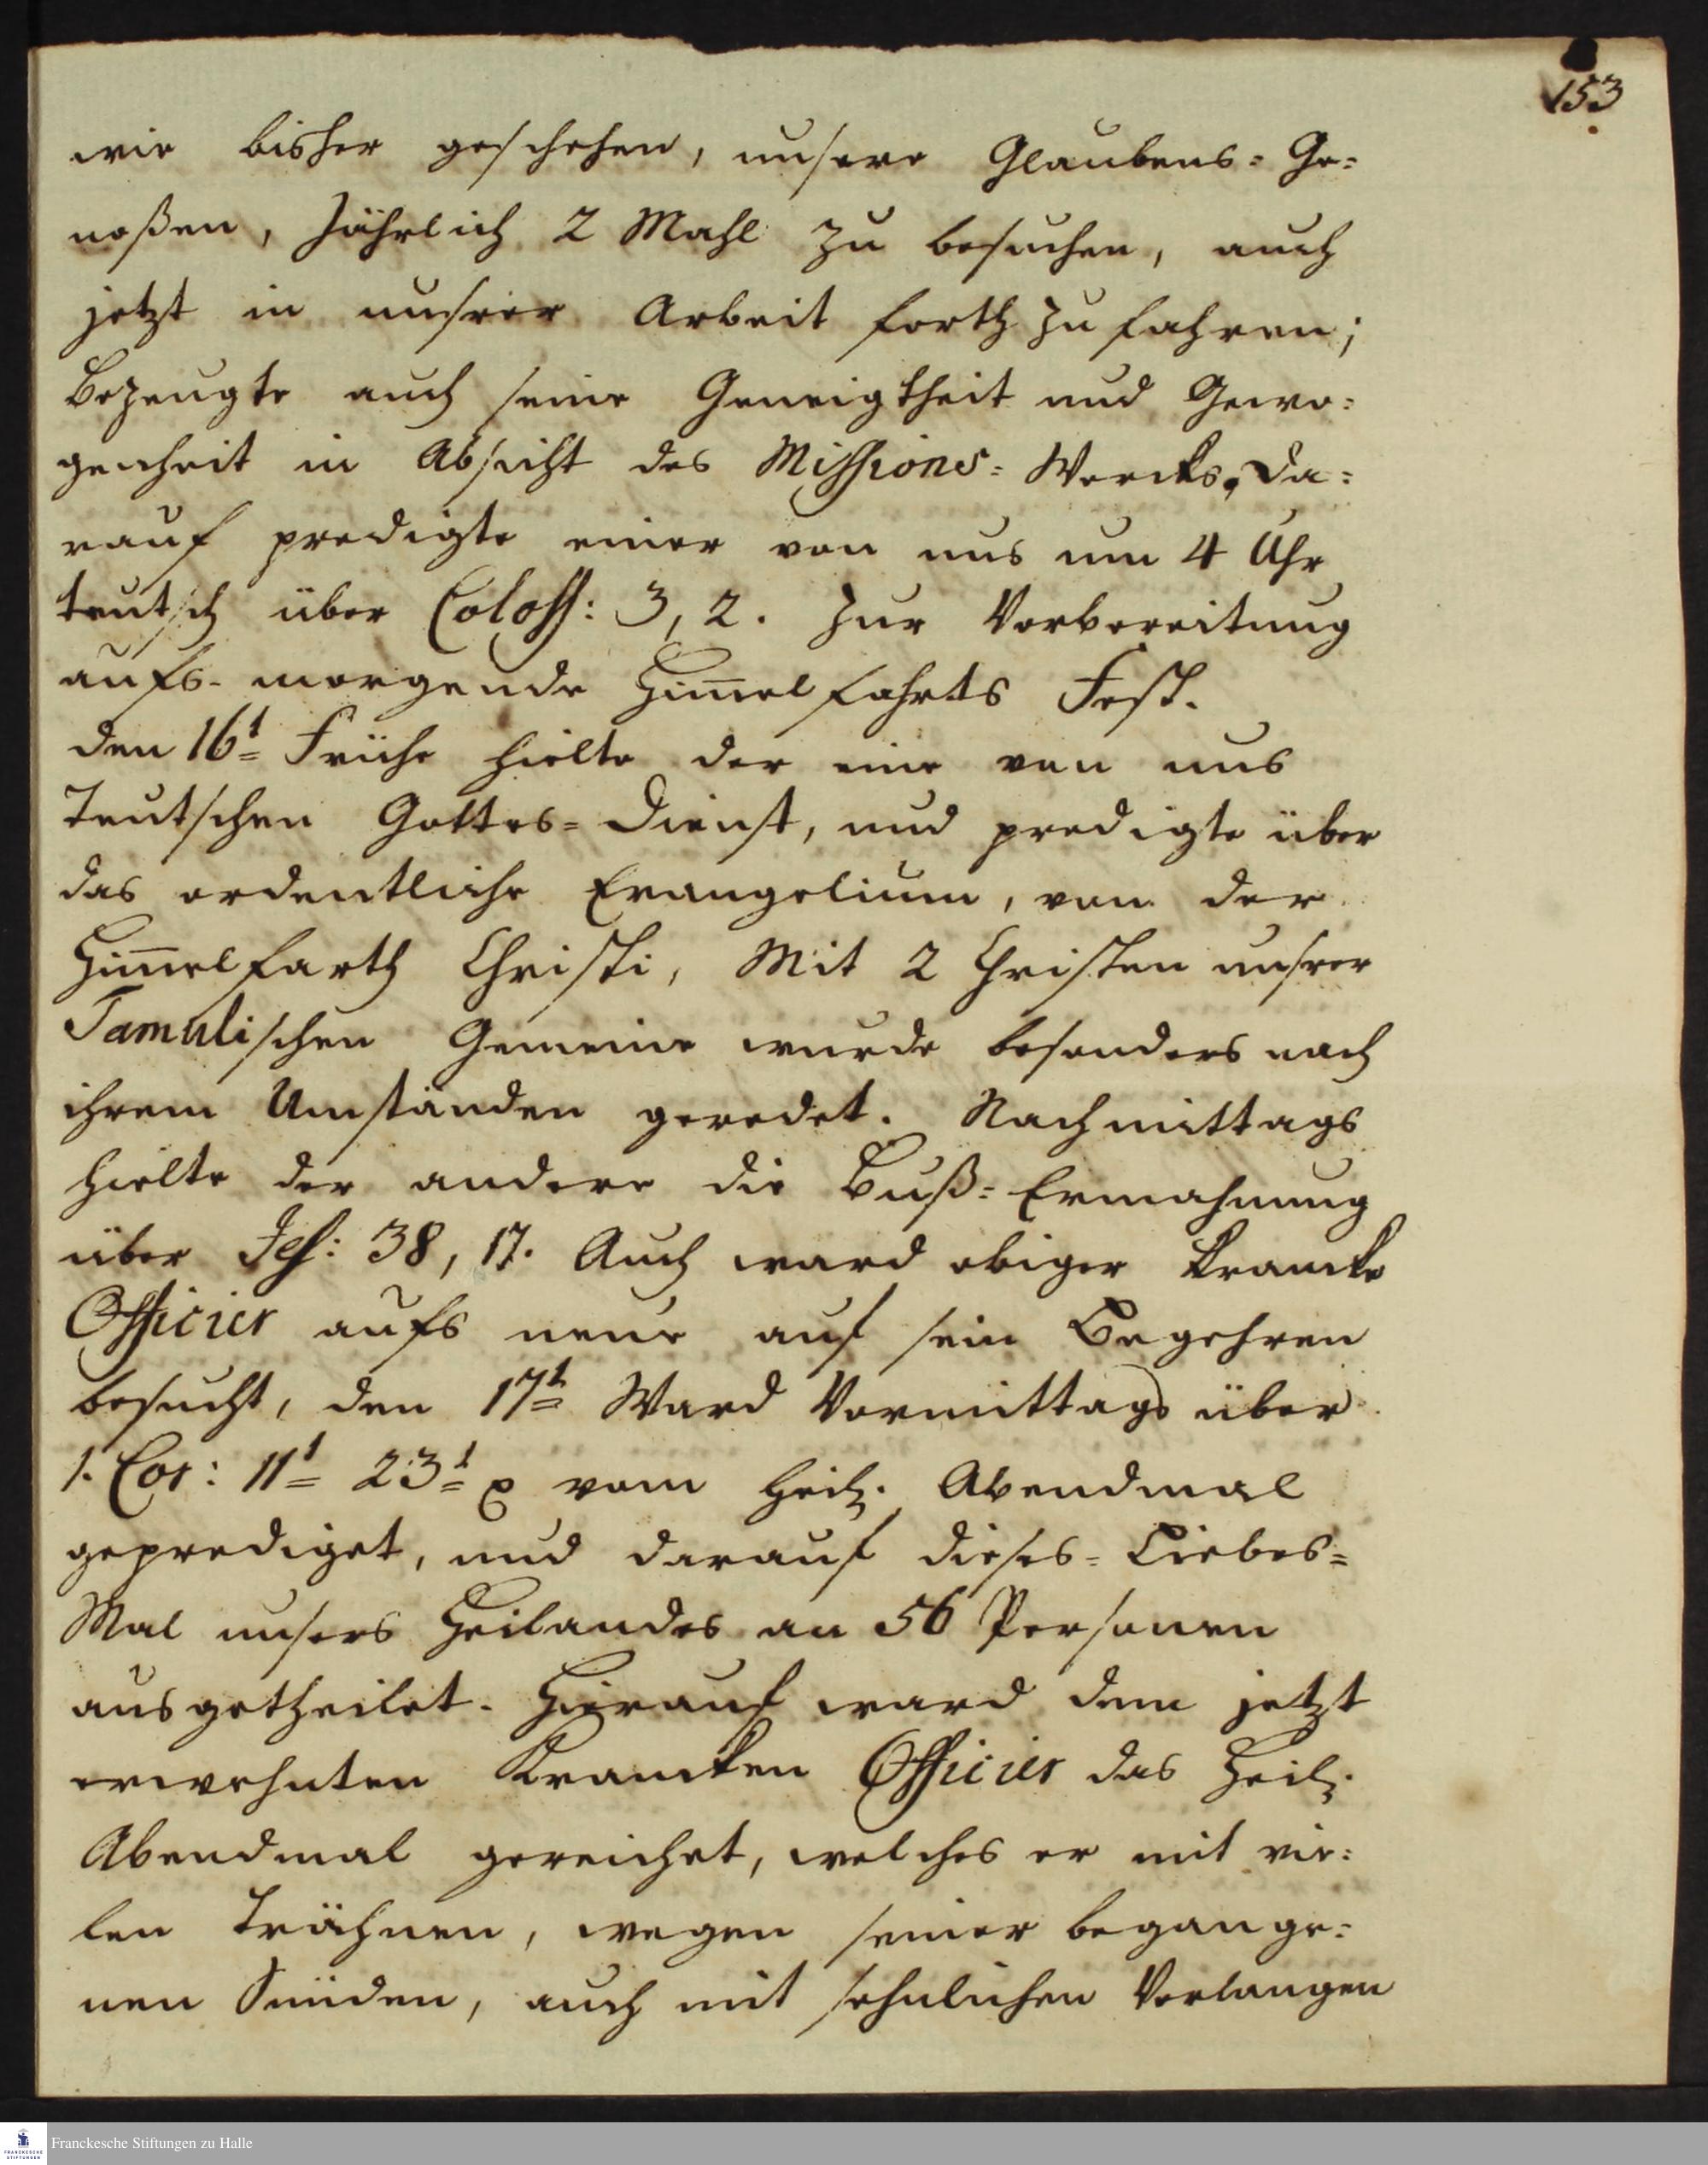 153
wie bisher geschehen, unsere Glaubens= Ge=
noßen, Jährlich 2 Mahl zu besuchen, auch
jetzt in unsrer Arbeit forth zu fahren;
Bezeugte auch seine Geneigtheit und Gewo=
genheit in Absicht des Missions= Wercks, Da=
rauf predigte einer von uns um 4 Uhr
teutsch über Coloss: 3, 2. Zur Vorbereitung
aufs morgende Him̅elfahrts Fest.
den 16t Frühe hielte der eine von uns
Teutschen Gottes= Dienst, und predigte über
das ordentliche Evangelium, von der
Him̅elfarth Christi, Mit 2 Christen unsrer
Tamulischen Gemeine wurde besonders nach
ihrem Umständen geredet. Nachmittags
hielte der andere die Buß= Ermahnung
über Jes: 38, 17. Auch ward obiger krancke
Officier aufs neue auf sein Begehren
besucht, den 17t Ward Vormittags über
1. Cor: 11t 23t vom heil. Abendmal
geprediget, und darauf dieses= Liebes=
Mal unsers Heilandes an 56 Personen
ausgetheilet. Hierauf ward dem jetzt
erwehnten Krancken Officier das Heil.
Abendmal gereichet, welches er mit vie=
len Trähnen, wegen seiner begange=
nen Sünden, auch mit sehnlichen Verlangen
Franckesche Stiftungen zu Halle
FRANCKESCHE
STIFTUNGEN